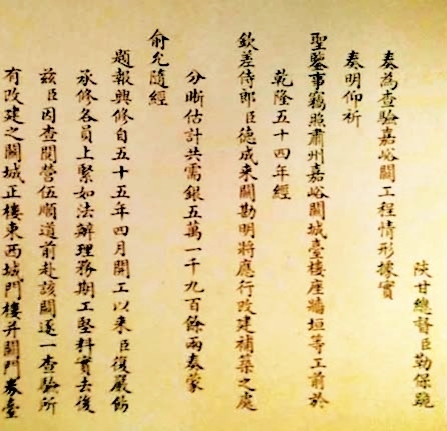 陝甘總督臣勒保跪
奏為查驗嘉峪關工程情形據實
奏明仰祈
聖鑒事竊照肅州嘉峪關城臺樓座牆垣等工前於
乾隆五十四年經
欽差侍郎臣德成來關勘明將應行改建補築之處
分晰估計共需銀五萬一千九百餘兩奏蒙
俞允隨經
題報興修自五十五年四月開工以來臣復嚴飭
承修各員上緊如法辦理務期工堅料實去後
茲臣因查閱營伍順道前赴該關逐一查驗所
有改建之關城正樓東西城門樓并關門券臺